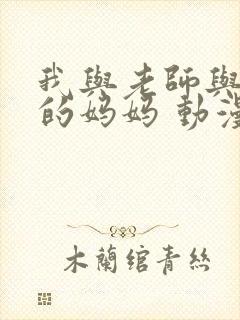 我與老師與
的妈妈 動漫
木蘭绾青絲